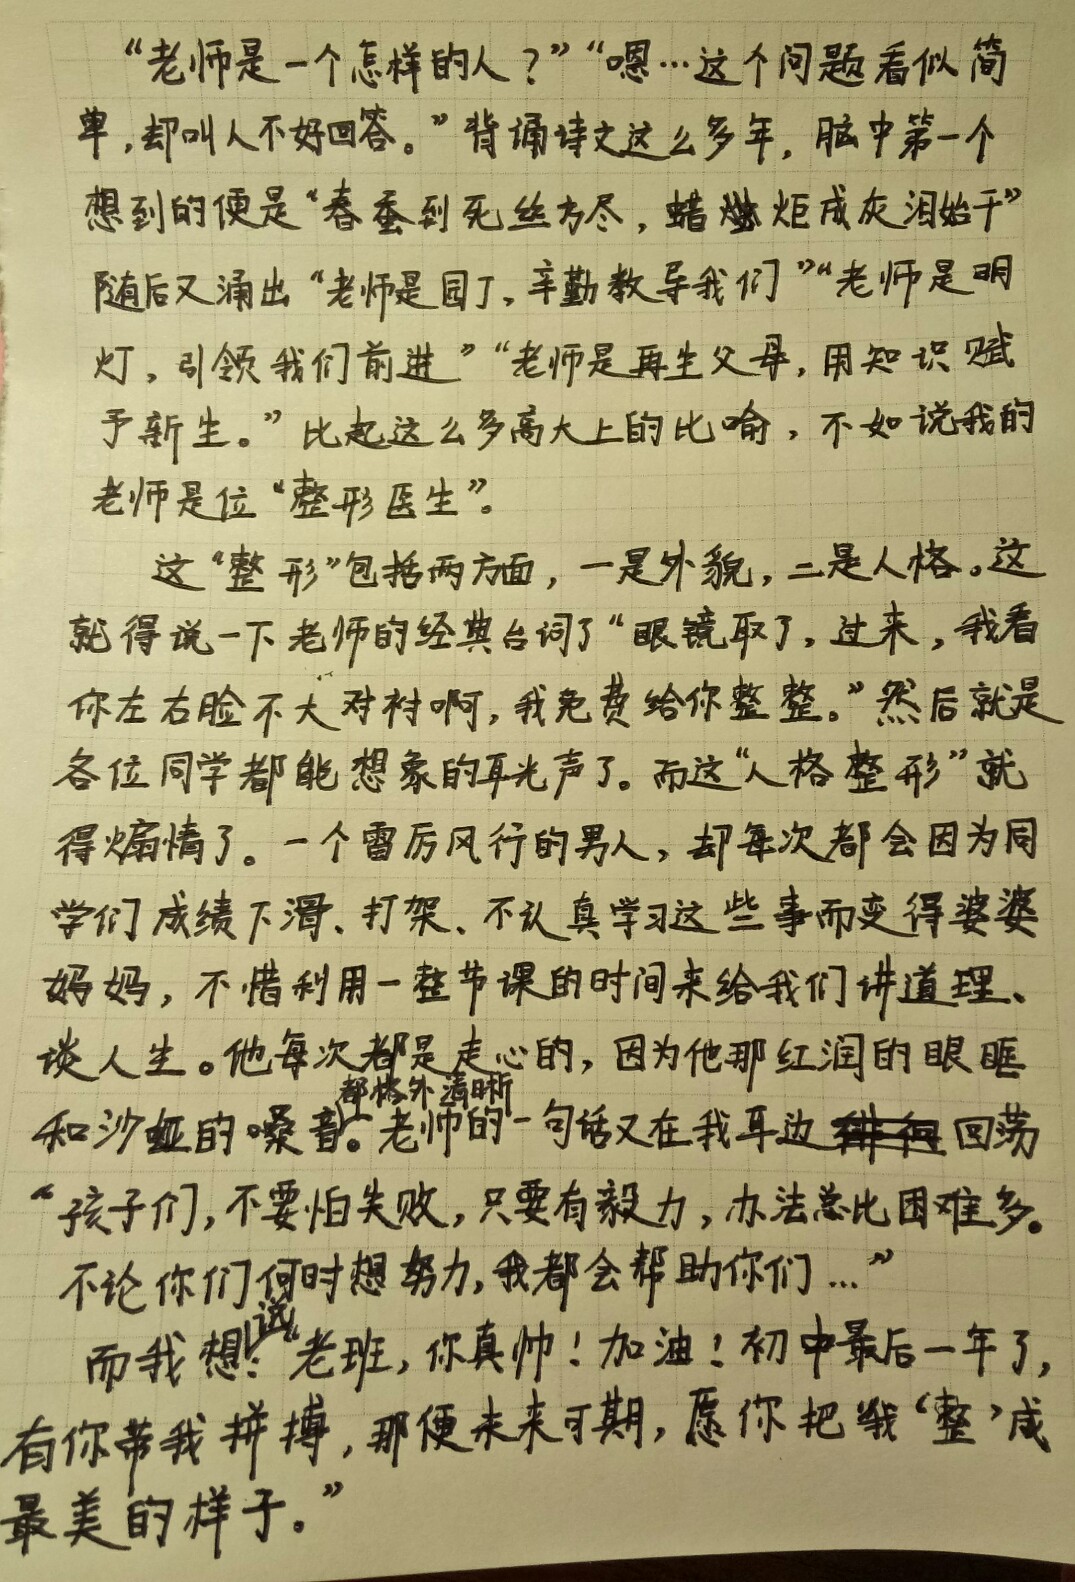 “老师是一个怎样的人？”“嗯…这个问题看似简
单，却叫人不好回答。”背诵诗文这么多年，脑中第一个
想到的便是“春蚕到死丝方尽，蜡炬成灰泪始干”
随后又涌出“老师是园丁，辛勤教导我们”“老师是明
灯，引领我们前进”“老师是再生父母，用知识赋
予新生。”比起这么多高大上的比喻，不如说我的
老师是位“整形医生”。
这“整形”包括两方面，一是外貌，二是人格。这
就得说一下老师的经典台词了“眼镜取了，过来，我看
你左右脸不大对衬啊，我免费给你整整。”然后就是
各位同学都能想象的耳光声了。而这“人格整形”就
得煽情了。一个雷厉风行的男人，却每次都会因为同
学们成绩下滑、打架、不认真学习这些事而变得婆婆
妈妈，不惜利用一整节课的时间来给我们讲道理、
谈人生。他每次都是走心的，因为他那红润的眼眶
都格外清晰
和沙哑的嗓音。老师的一句话又在我耳边回荡
“孩子们，不要怕失败，只要有毅力，办法总比困难多。
不论你们何时想努力，我都会帮助你们…”
说
而我想：“老班，你真帅！加油！初中最后一年了，
有你带我拼搏，那便未来可期，愿你把我‘整’成
最美的样子。”